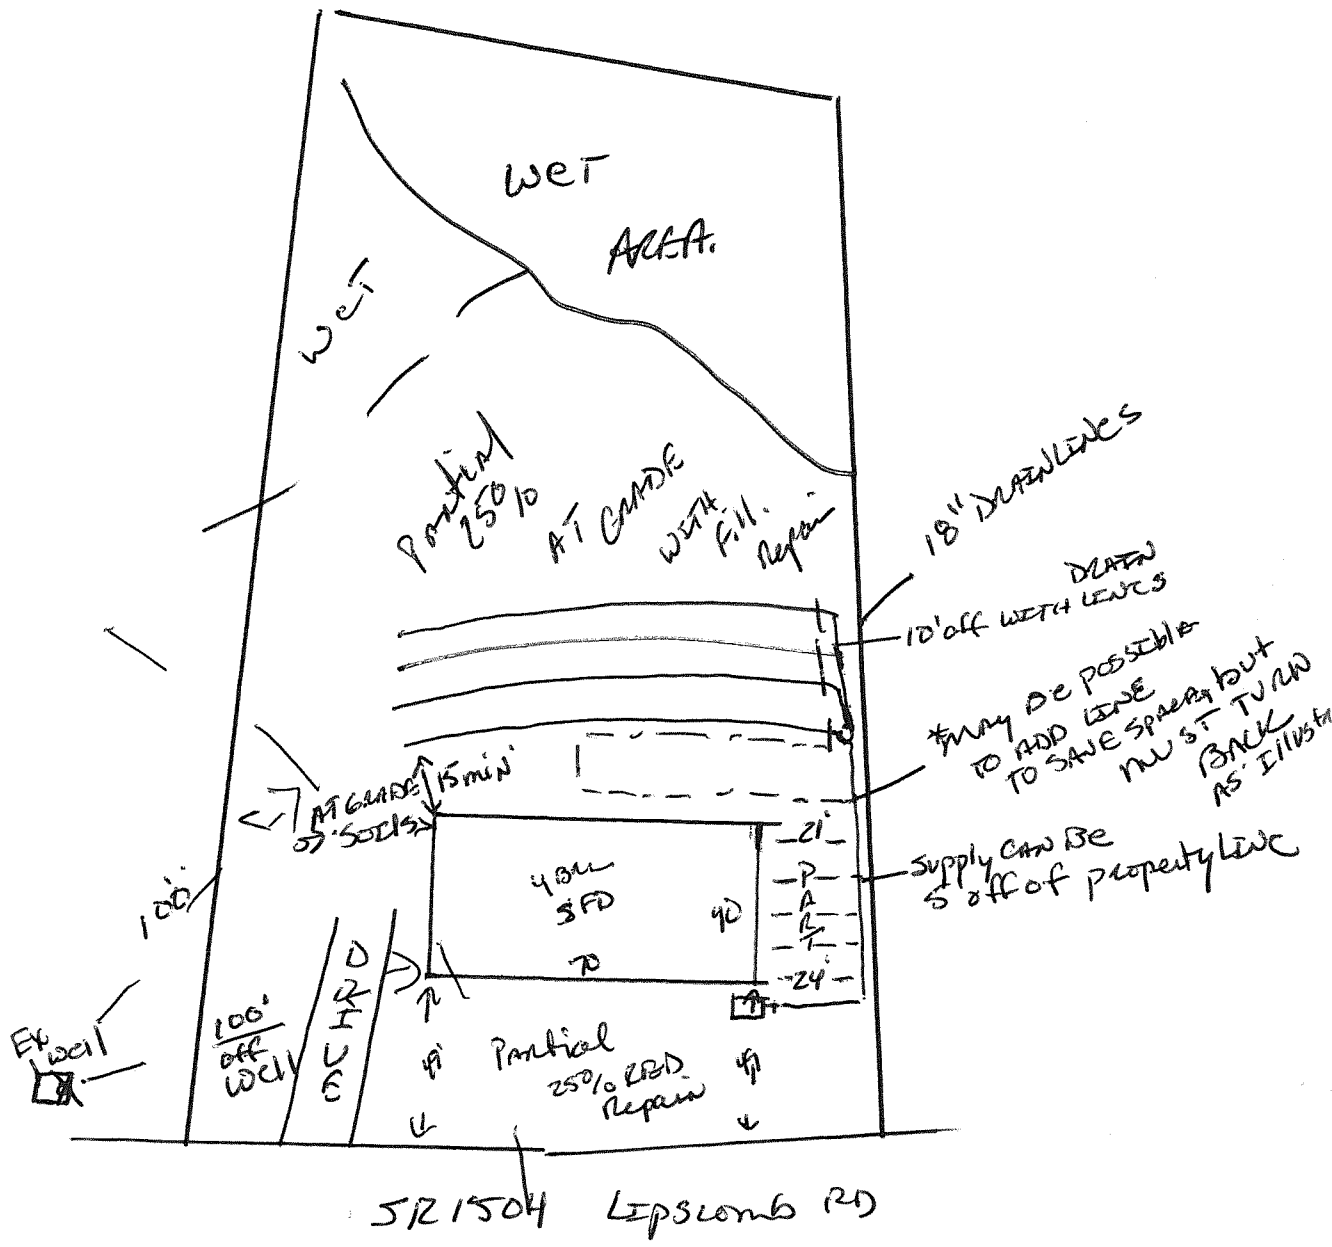 WET
AREA.
WET
PARtial
25%
AT GRADE
WITH
Fill.
Repair
18" DRAINLINES
DRAIN
10' off WITH LINES
*MAY BE possible
TO ADD LINE
TO SAVE SPACE, but
MUST TURN
BACK
AS Illustr
15 min'
AT GRADE
SOILS
21'
P
A
R
T
24'
Supply CAN BE
5' off of property LINE
SFD
40
70
100'
DRIVE
100'
off
Well
Ex
Well
PARtial
25% RED
Repair
SR1504 LIPSCOMB RD